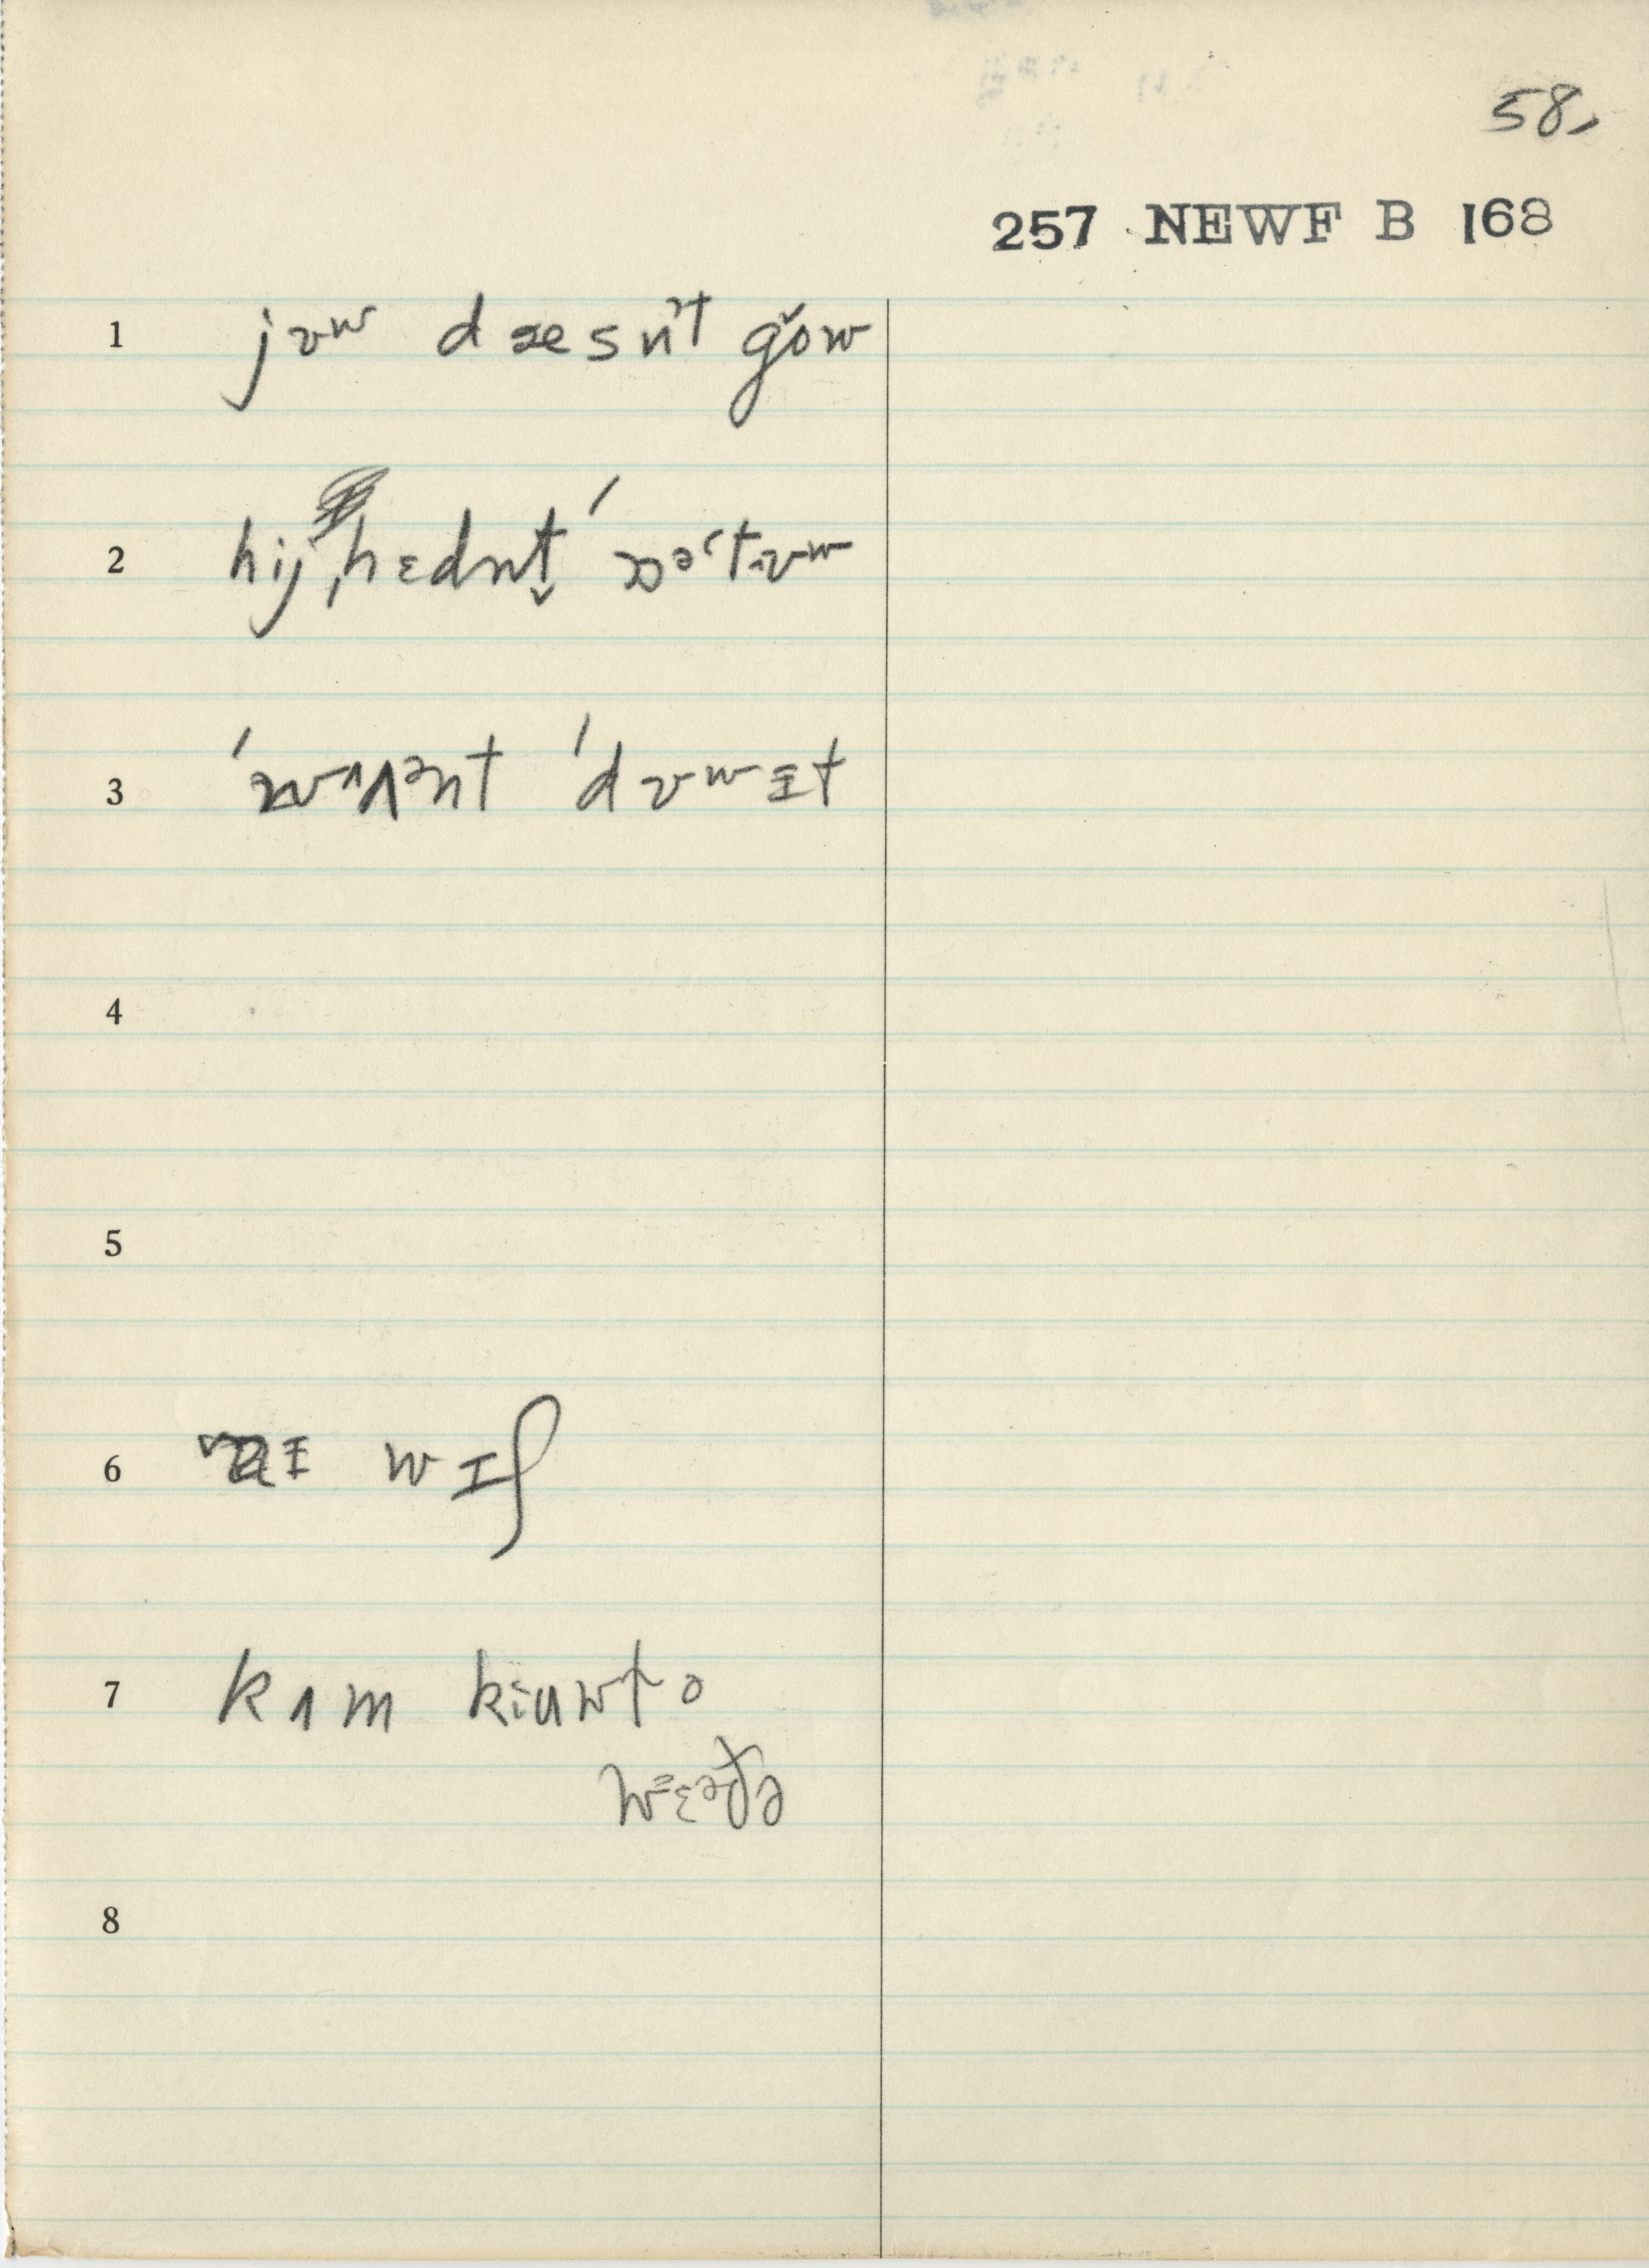 58.
257 NEWF B 168
1 jʊʷ dæesn̍ᵊt gŏow
2 hij ˌhɛdnt̬ ˈɒəˈtʊʷ
3 ˈwʌənt ˈdʊʷɪt
4
5
6 ɑɪ wɪʃ
7 kʌm kiuwtə
wɛəðə
8